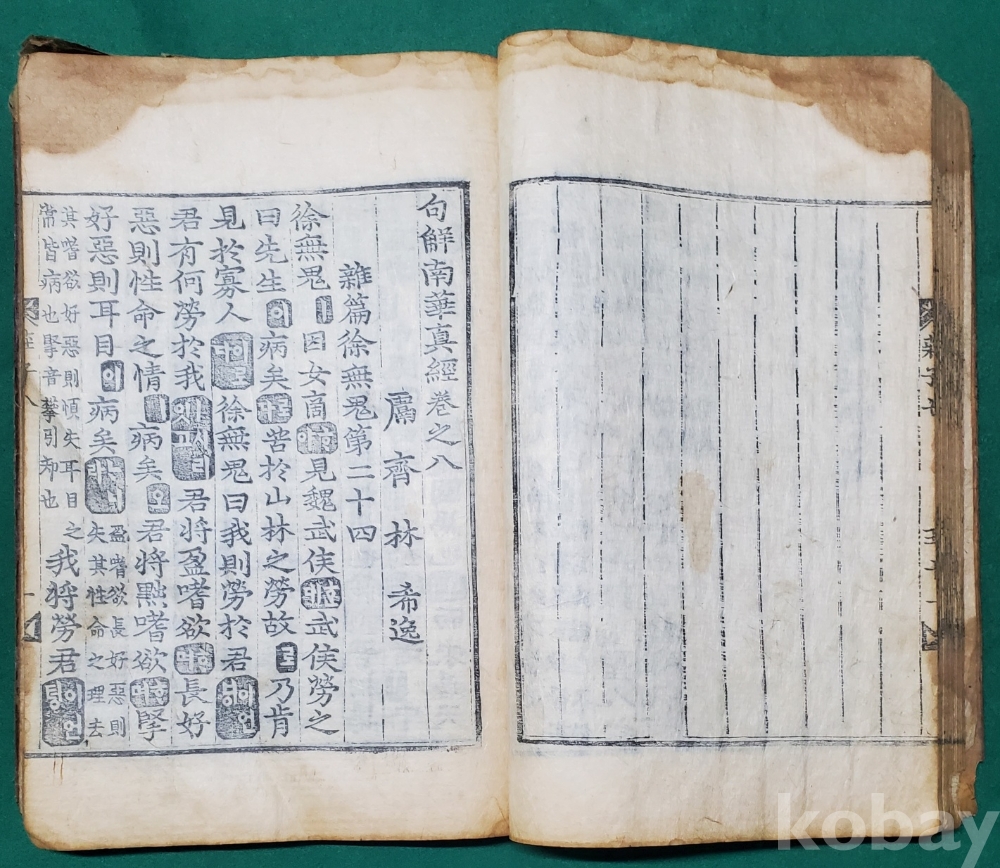 句觧南華真經卷之八
鬳齊林希逸
雜篇徐無鬼第二十四
徐無鬼ㅣ因女商見魏武侯武侯勞之
曰先生이病矣苦於山林之勞故로乃肯
見於寡人徐無鬼曰我則勞於君
君有何勞於我君將盈嗜欲長好
惡則性命之情病矣오君將黜嗜欲掔
好惡則耳目이病矣盈嗜欲長好惡則
失其性命之理去
其嗜欲好惡則失耳目之
常皆病也掔音引却也
我將勞君